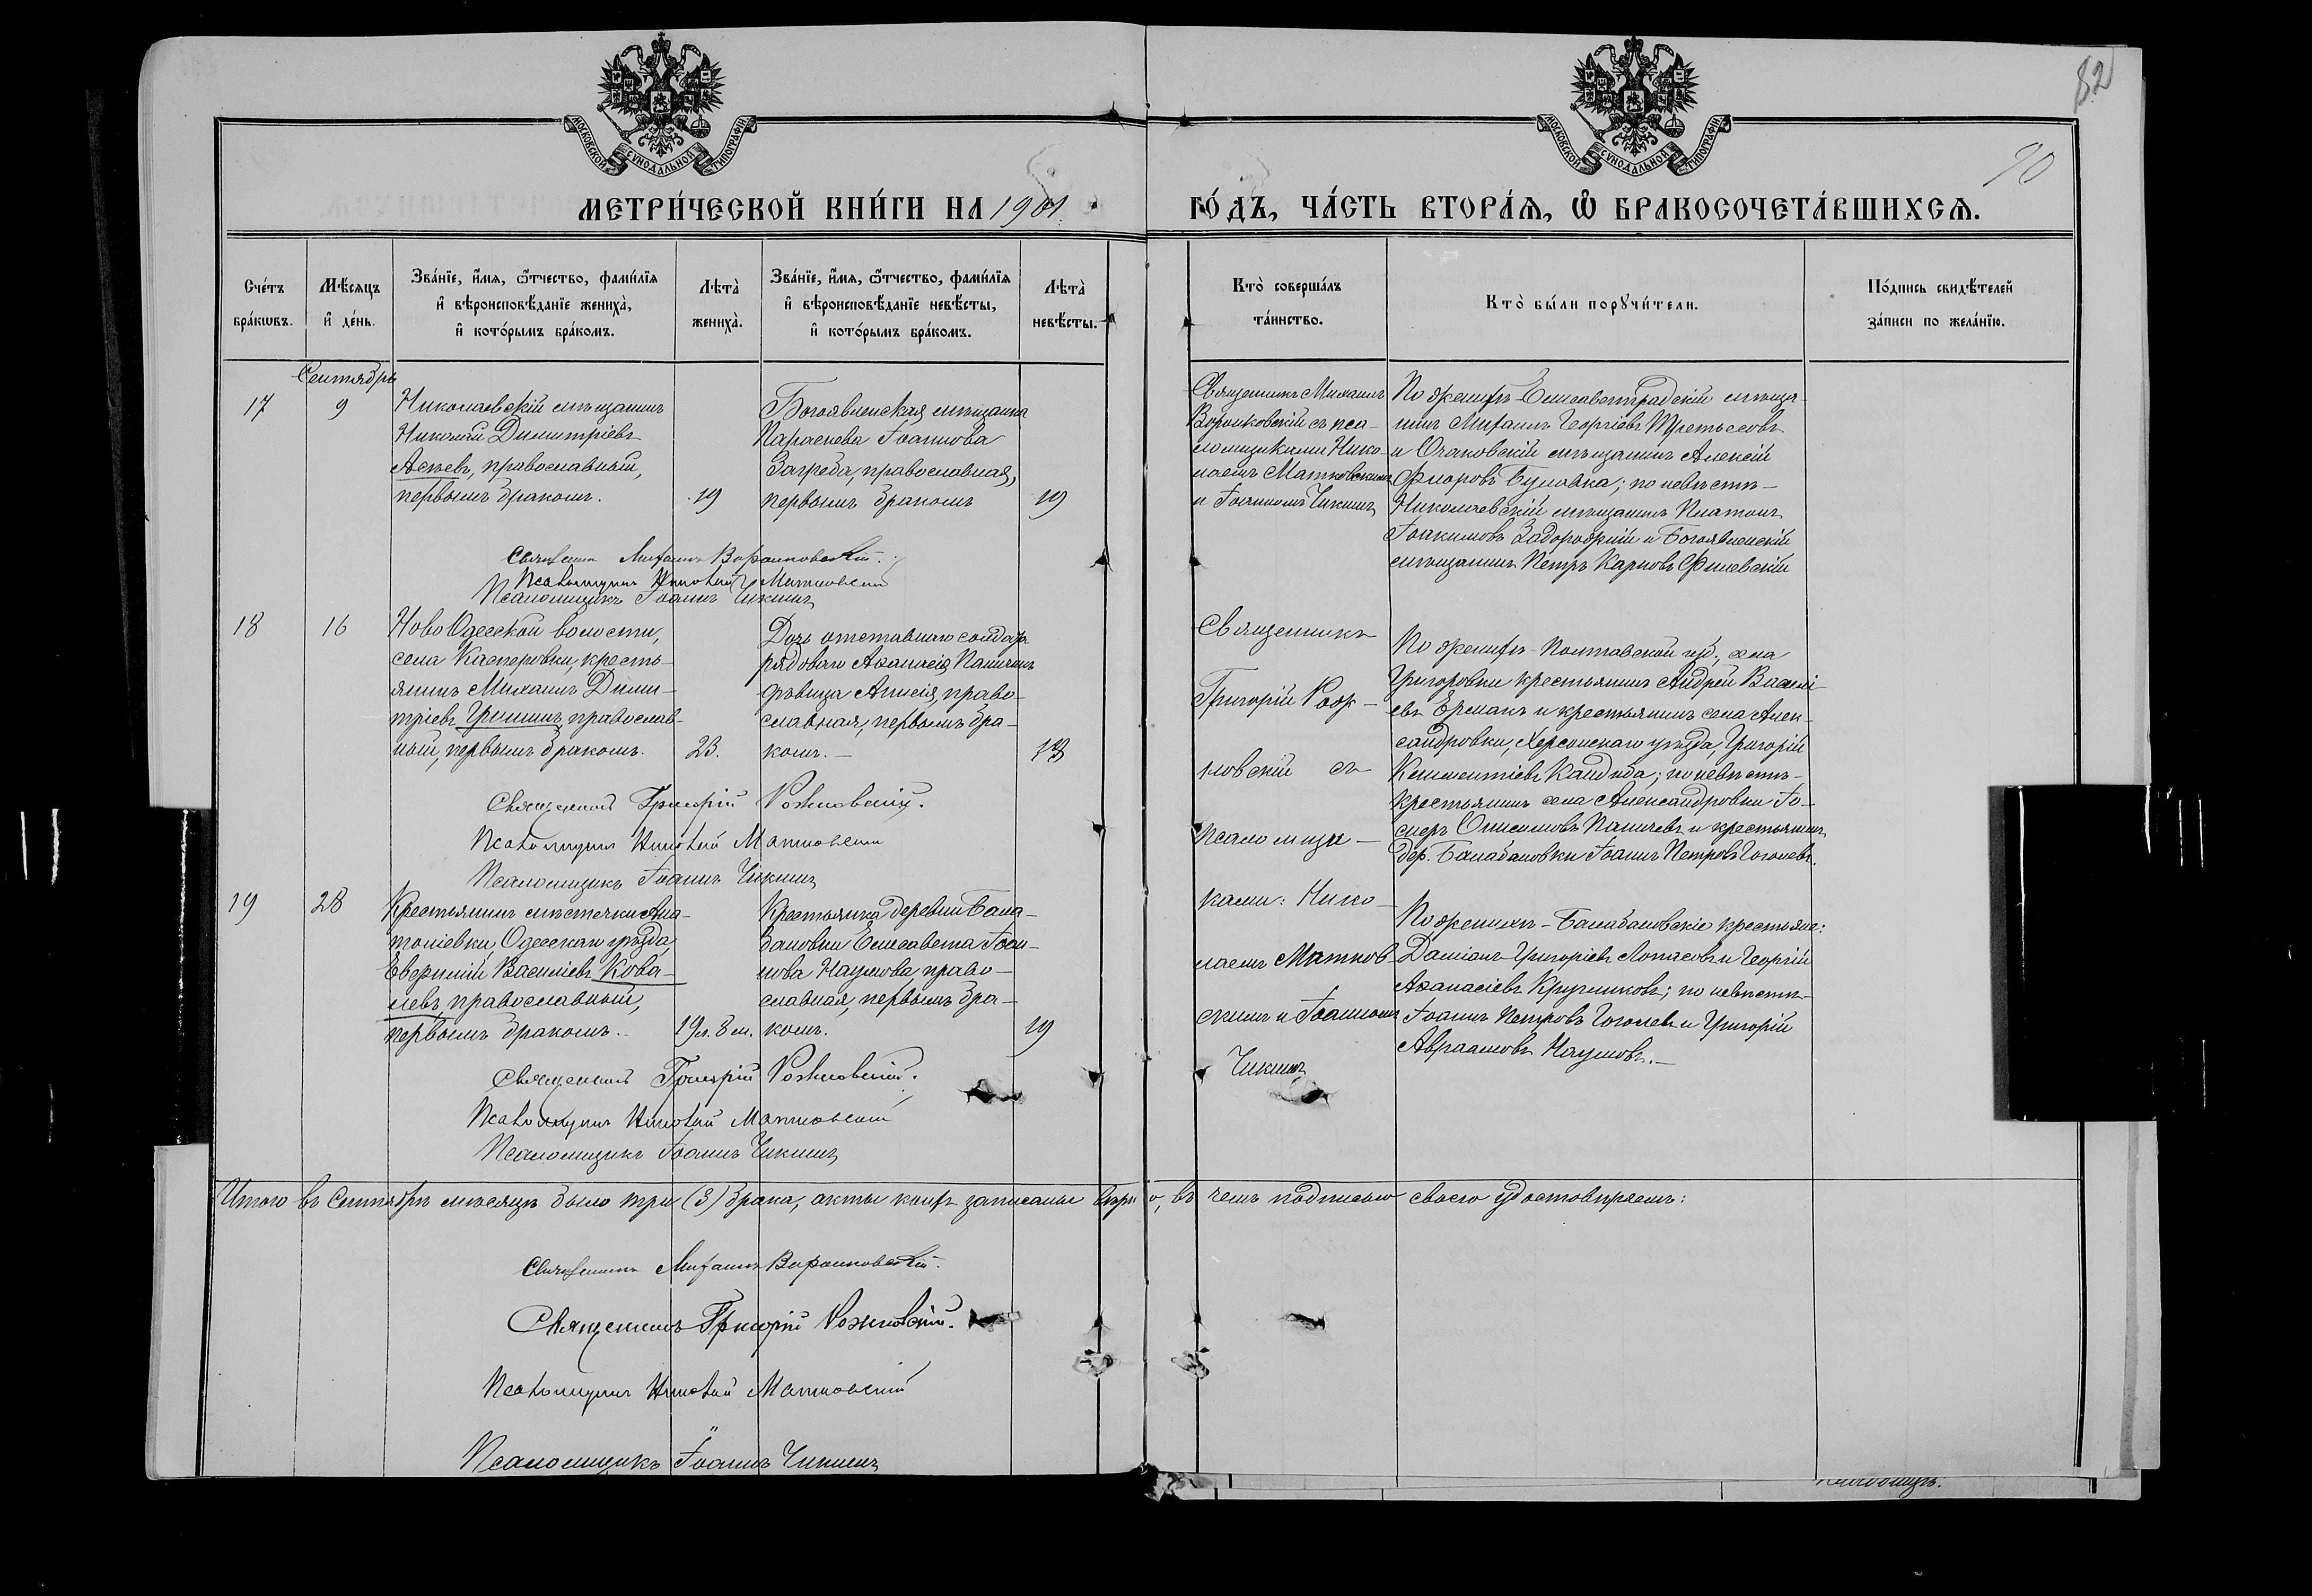 82
90
МОСКОВСКОЙ СѴНОДАЛЬНОЙ ТИПОГРАФІИ
МОСКОВСКОЙ СѴНОДАЛЬНОЙ ТИПОГРАФІИ
МЕТРИ́ЧЕСКОЙ КНИ́ГИ НА 1901
ГО́ДЪ, ЧА́СТЬ ВТОРА́Я, Ѡ҆ БРАКОСОЧЕТА́ВШИХСЯ.
Сче́тъ бра́кѡвъ.
Мѣ́сяцъ и҆ де́нь.
Зва́нїе, и҆́мя, ѻ҆́тчество, фами́лїя и҆ вѣроисповѣ́данїе жениха̀, и҆ кото́рымъ бра́комъ.
Лѣта̀ жениха̀.
Зва́нїе, и҆́мя, ѻ҆́тчество, фами́лїя и҆ вѣроисповѣ́данїе невѣ́сты, и҆ кото́рымъ бра́комъ.
Лѣта̀ невѣ́сты.
Кто̀ соверша́лъ та́инство.
Кто̀ бы́ли порꙋчи́тели.
По́дпись свидѣ́телей за́писи по жела́нїю.
Сентябрь
17
9
Николаевскій мѣщанинъ
Николай Димитріевъ
Асѣевъ, православный,
первымъ бракомъ.
19
Богоявленская мѣщанка
Параскева Іоаннова
Загреба, православная,
первымъ бракомъ
19
Священникъ Михаилъ
Воронковскій съ пса-
ломщиками Нико-
лаемъ Матковскимъ
и Іоанномъ Чикинъ
По женихѣ Елисаветградскій мѣща-
нинъ Михаилъ Георгіевъ Третьесовъ
и Очаковскій мѣщанинъ Алексій
Флоровъ Булавка; по невѣстѣ -
Николаевскій мѣщанинъ Платонъ
Іоакимовъ Задорожній и Богоявленскій
мѣщанинъ Петръ Карповъ Филевскій
Священникъ Михаилъ Воронковскій.
Псаломщикъ Николай Матковскій
Псаломщикъ Іоаннъ Чикинъ
18
16
Ново Одесской волости,
села Касперовки, кресть-
янинъ Михаилъ Дими-
тріевъ Гресинъ, православ-
ный, первымъ бракомъ.
23.
Дочь отставного солдата
рядового Аѳанасія Паничевъ
дѣвица Анисія, право-
славная, первымъ бра-
комъ. -
18
Священникъ
Григорій Рож-
новскій съ
псаломщи-
ками: Нико-
лаемъ Матков-
скимъ и Іоанномъ
Чикинъ
По женихѣ - Полтавской губ., села
Григоровки крестьянинъ Андрей Василі-
евъ Ермакъ и крестьянинъ села Алек-
сандровки, Херсонскаго уѣзда, Григорій
Климентіевъ Кандыба; по невѣстѣ -
крестьянинъ села Александровки Іо-
сифъ Онисимовъ Паничевъ и крестьянинъ
дер. Балабановки Іоаннъ Петровъ Гоголевъ.
Священникъ Григорій Рожновскій.
Псаломщикъ Николай Матковскій
Псаломщикъ Іоаннъ Чикинъ
19
28
Крестьянинъ мѣстечки Ана-
толіевки, Одесскаго уѣзда
Евфимій Василіевъ Кова-
левъ, православный,
первымъ бракомъ.
19 л. 8 м.
Крестьянка деревни Бала-
бановки Елисавета Іоан-
нова Наумова, право-
славная, первымъ бра-
комъ.
19
По женихѣ - Балабановскіе крестьяне:
Даміанъ Григоріевъ Лопасовъ и Георгій
Аѳанасіевъ Кругликовъ; по невѣстѣ -
Іоаннъ Петровъ Гоголевъ и Григорій
Авраамовъ Наумовъ. -
Священникъ Григорій Рожновскій.
Псаломщикъ Николай Матковскій
Псаломщикъ Іоаннъ Чикинъ
Итого въ Сентябрѣ мѣсяцѣ было три (3) брака, акты коихъ записаны вѣрно, въ чемъ подписью своею удостовѣряемъ:
Священникъ Михаилъ Воронковскій.
Священникъ Григорій Рожновскій.
Псаломщикъ Николай Матковскій
Псаломщикъ Іоаннъ Чикинъ